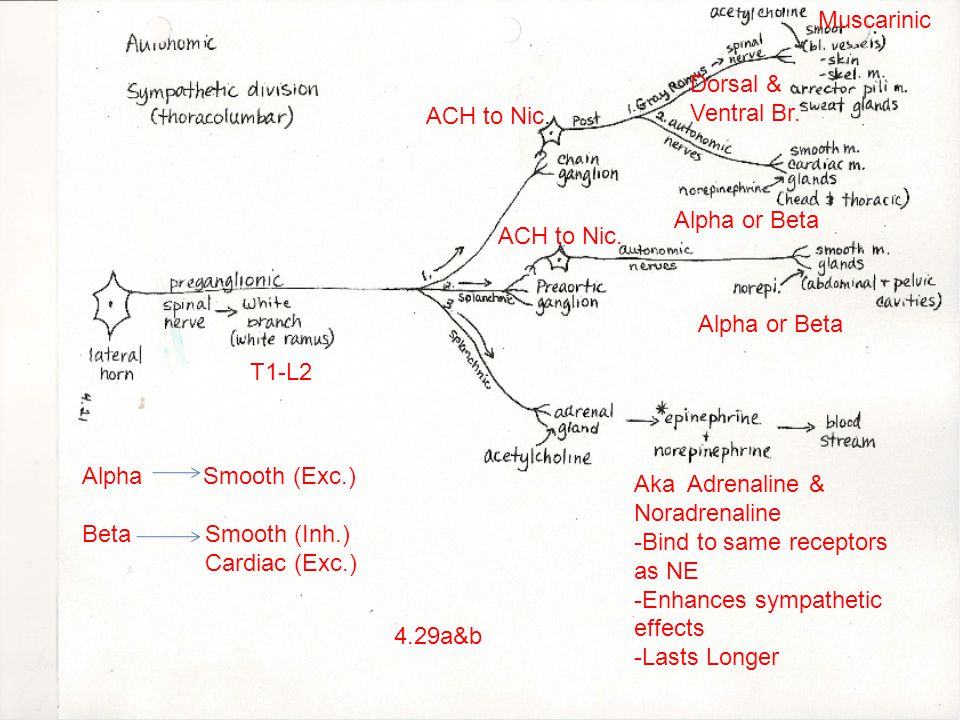 Autonomic
Sympathetic division
(thoracolumbar)
acetylcholine
Muscarinic
smoot
(bl. vessels)
-skin
-skel. m.
arrector pili m.
sweat glands
spinal
nerve
1. Gray Ramus
Dorsal &
Ventral Br.
ACH to Nic.
Post
2. autonomic
nerves
chain
ganglion
smooth m.
cardiac m.
glands
norepinephrine
(head & thoracic)
Alpha or Beta
ACH to Nic.
autonomic
nerves
smooth m.
glands
norepi.
(abdominal + pelvic
cavities)
Alpha or Beta
preganglionic
spinal
nerve
white
branch
(white ramus)
lateral
horn
T1-L2
1.
2.
splanchnic
Preaortic
ganglion
3.
splanchnic
4.21
adrenal
gland
acetylcholine
*epinephrine
+
norepinephrine
blood
stream
Alpha Smooth (Exc.)
Beta Smooth (Inh.)
Cardiac (Exc.)
Aka Adrenaline &
Noradrenaline
-Bind to same receptors
as NE
-Enhances sympathetic
effects
-Lasts Longer
4.29a&b